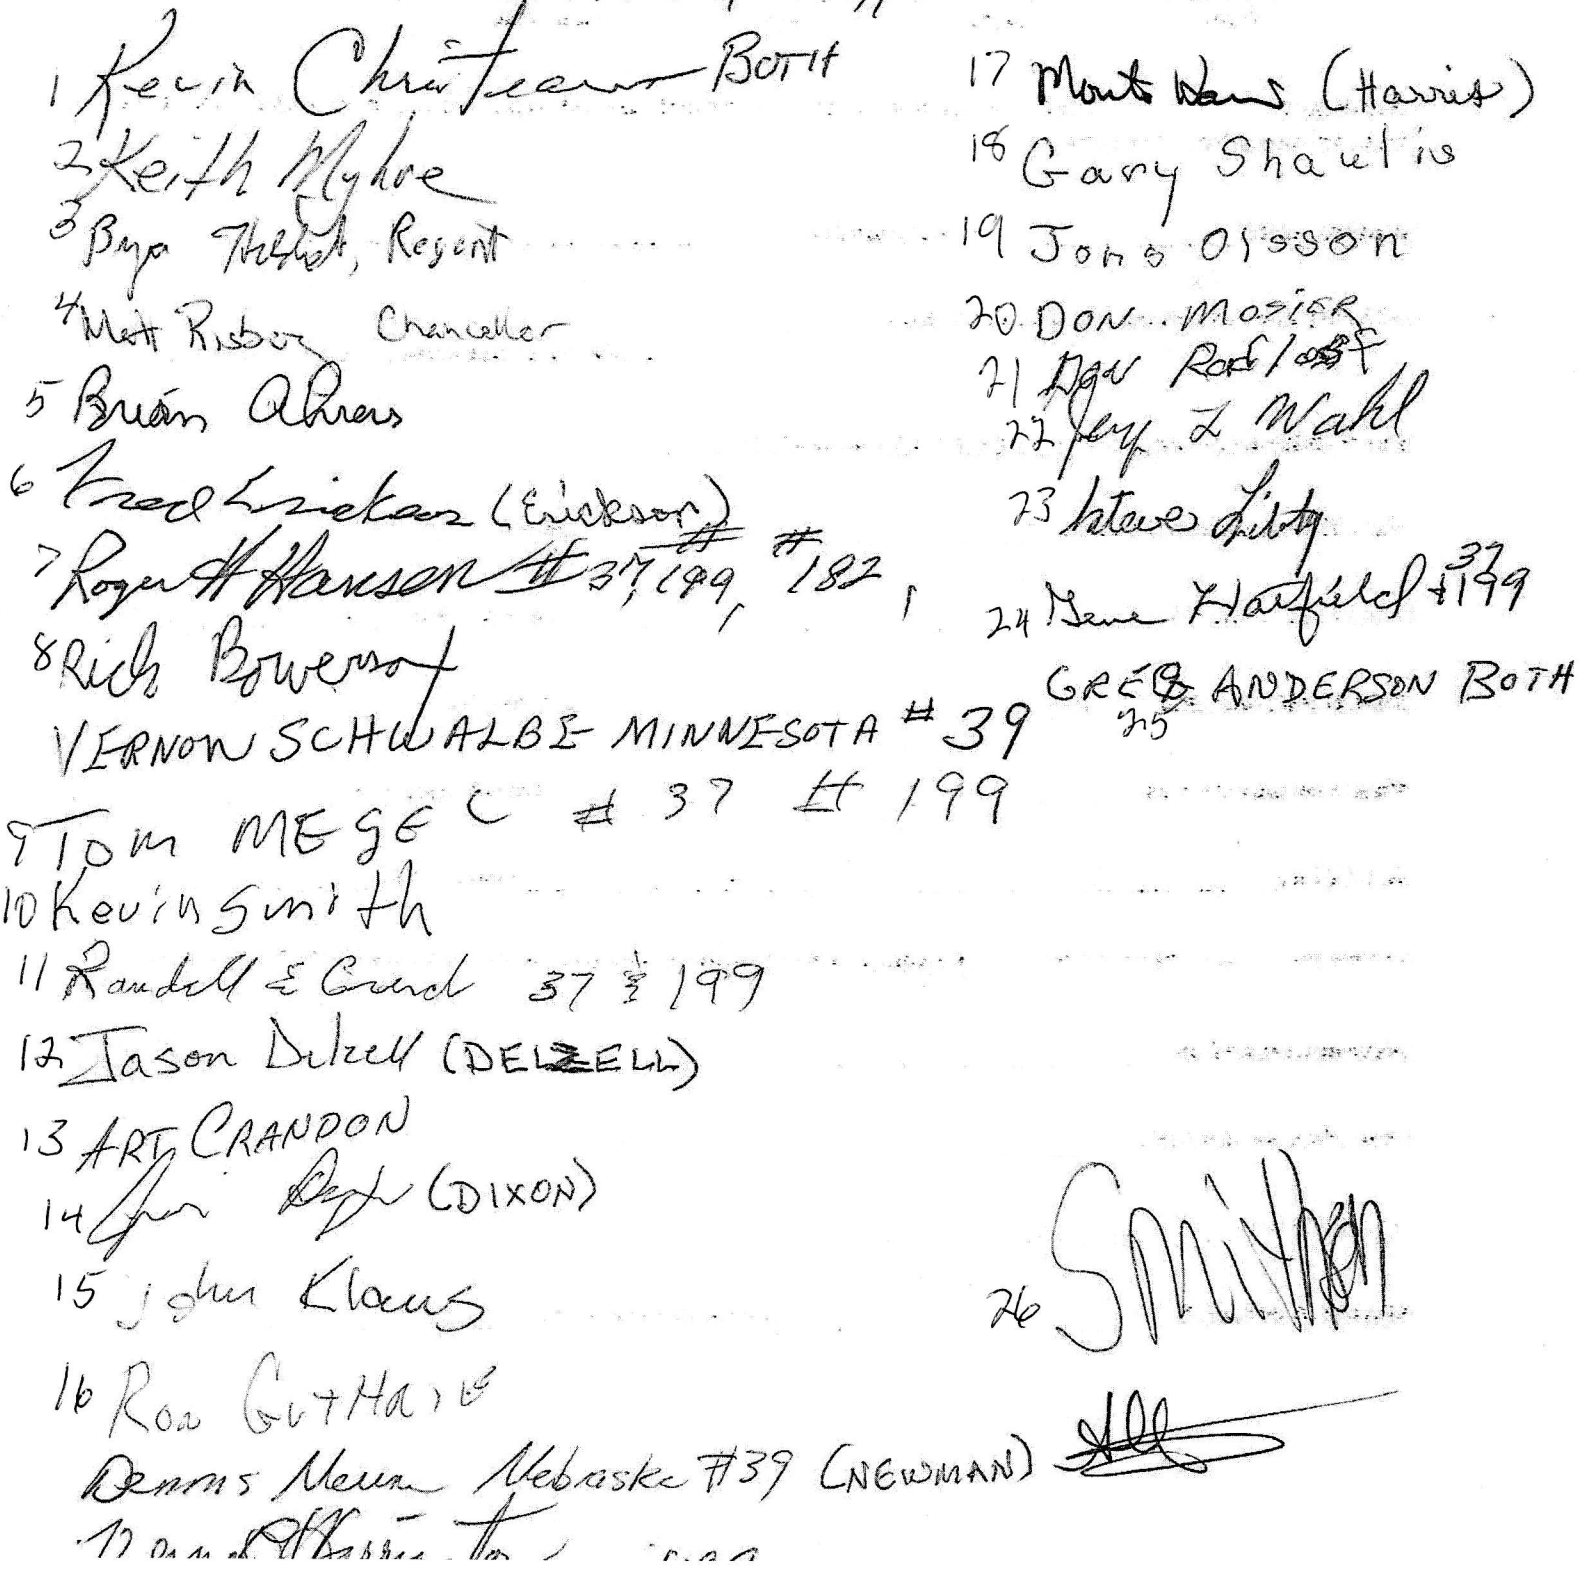 1 Kevin Christeans BOTH
2 Keith Myhre
3 Regent
4 Matt Risboy Chancellor
5 Brian Ahrens
6 Fred Erickson (Erickson)
7 Roger H Hansen # 37, 199, # 182,
8 Rich Bowersox
VERNON SCHWALBE MINNESOTA # 39
9 TOM MEGEC # 37 # 199
10 Kevin Smith
11 Randell E 37 & 199
12 Jason Delzell (DELZELL)
13 ART CRANDON
14 (DIXON)
15 John Klaus
16 Ron GutHaie
Dennis Newman Nebraska #39 (NEWMAN)
17 Monte Harris (Harris)
18 Gary Shaulis
19 Jons Olsson
20 DON MOSIER
21 Dan
22 Jerry L Wahl
23 Steve Libty
24 Gene Hatfield 37 + 199
GREG ANDERSON BOTH
25
26 Smithen